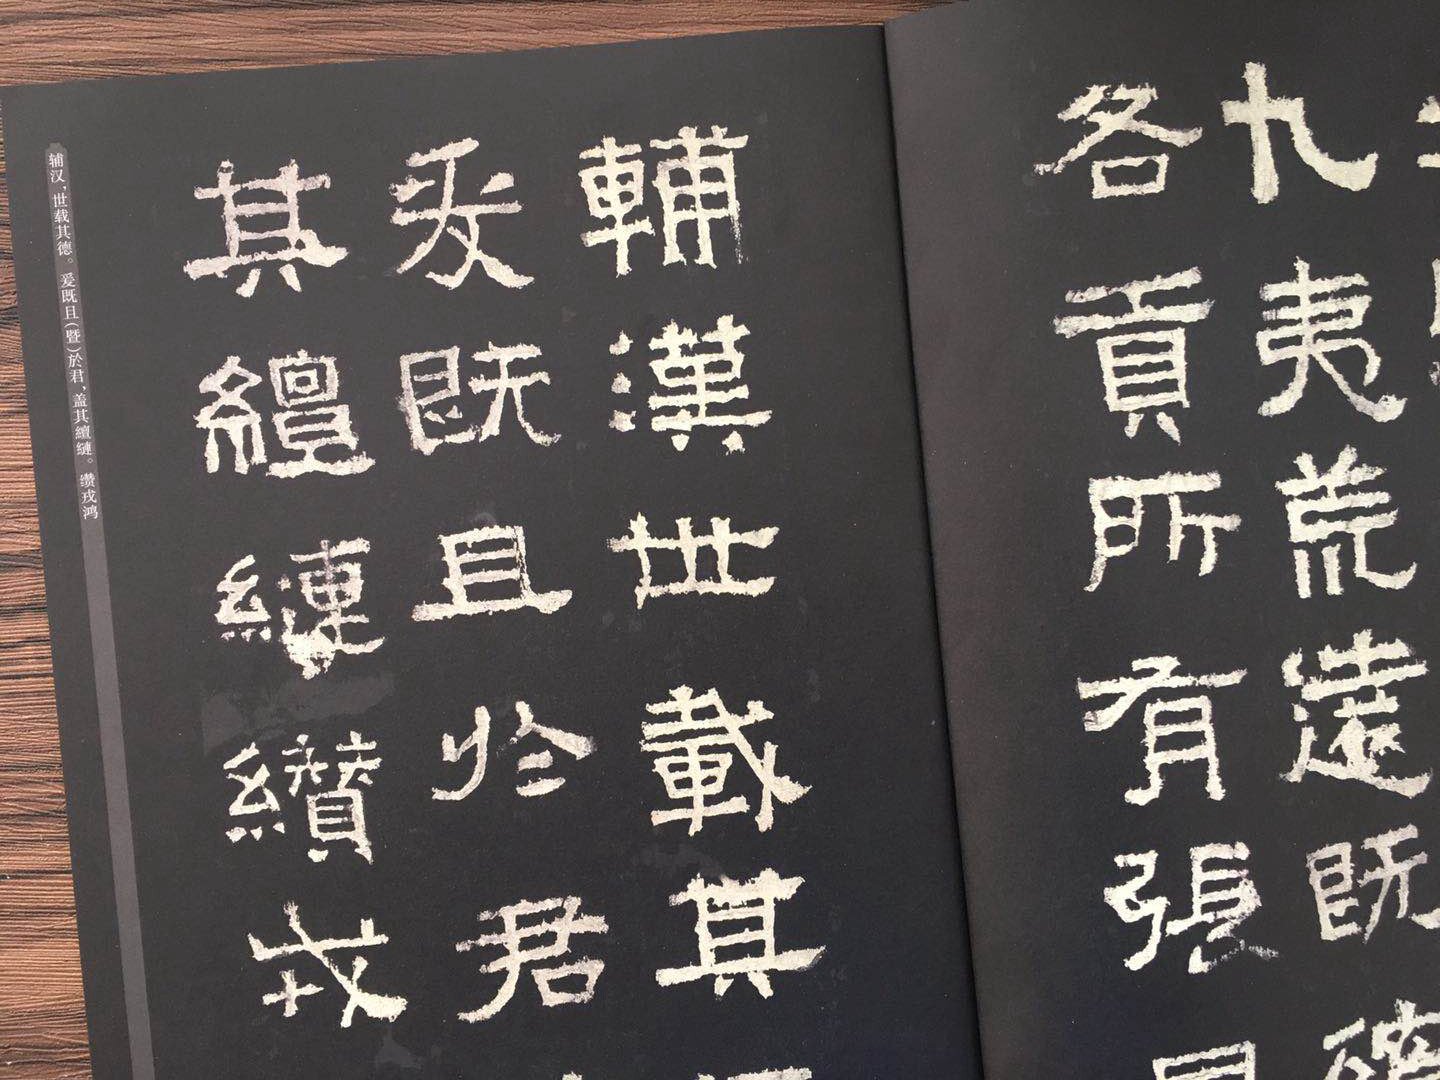 九夷荒远既
各貢所有張
輔漢世載其
爰既且於君
其繵縺纘戎
辅汉，世载其德。爰既且（暨）於君，盖其繵縺。缵戎鸿